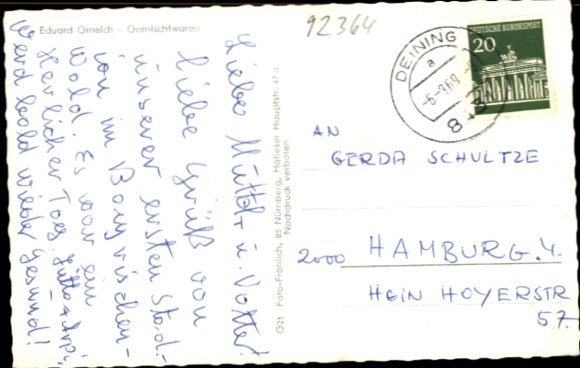 Eduard Gmelch - Gemischtwaren
92364
DEINING
a
-6.-9.69
8431
DEUTSCHE BUNDESPOST
20
Liebe Mutti u. Vater!
liebe Grüß von
unserer ersten Stad-
ion im Bayrischen-
Wald. Es war ein
Herlicher Tag.
Werd bald wieder gesund!
G21 Foto-Fröhlich, 85 Nürnberg, Hafleser Hauptstr. 47a
Nachdruck verboten
AN
GERDA SCHULTZE
2000 HAMBURG. 4.
HEIN HOYERSTR
57.